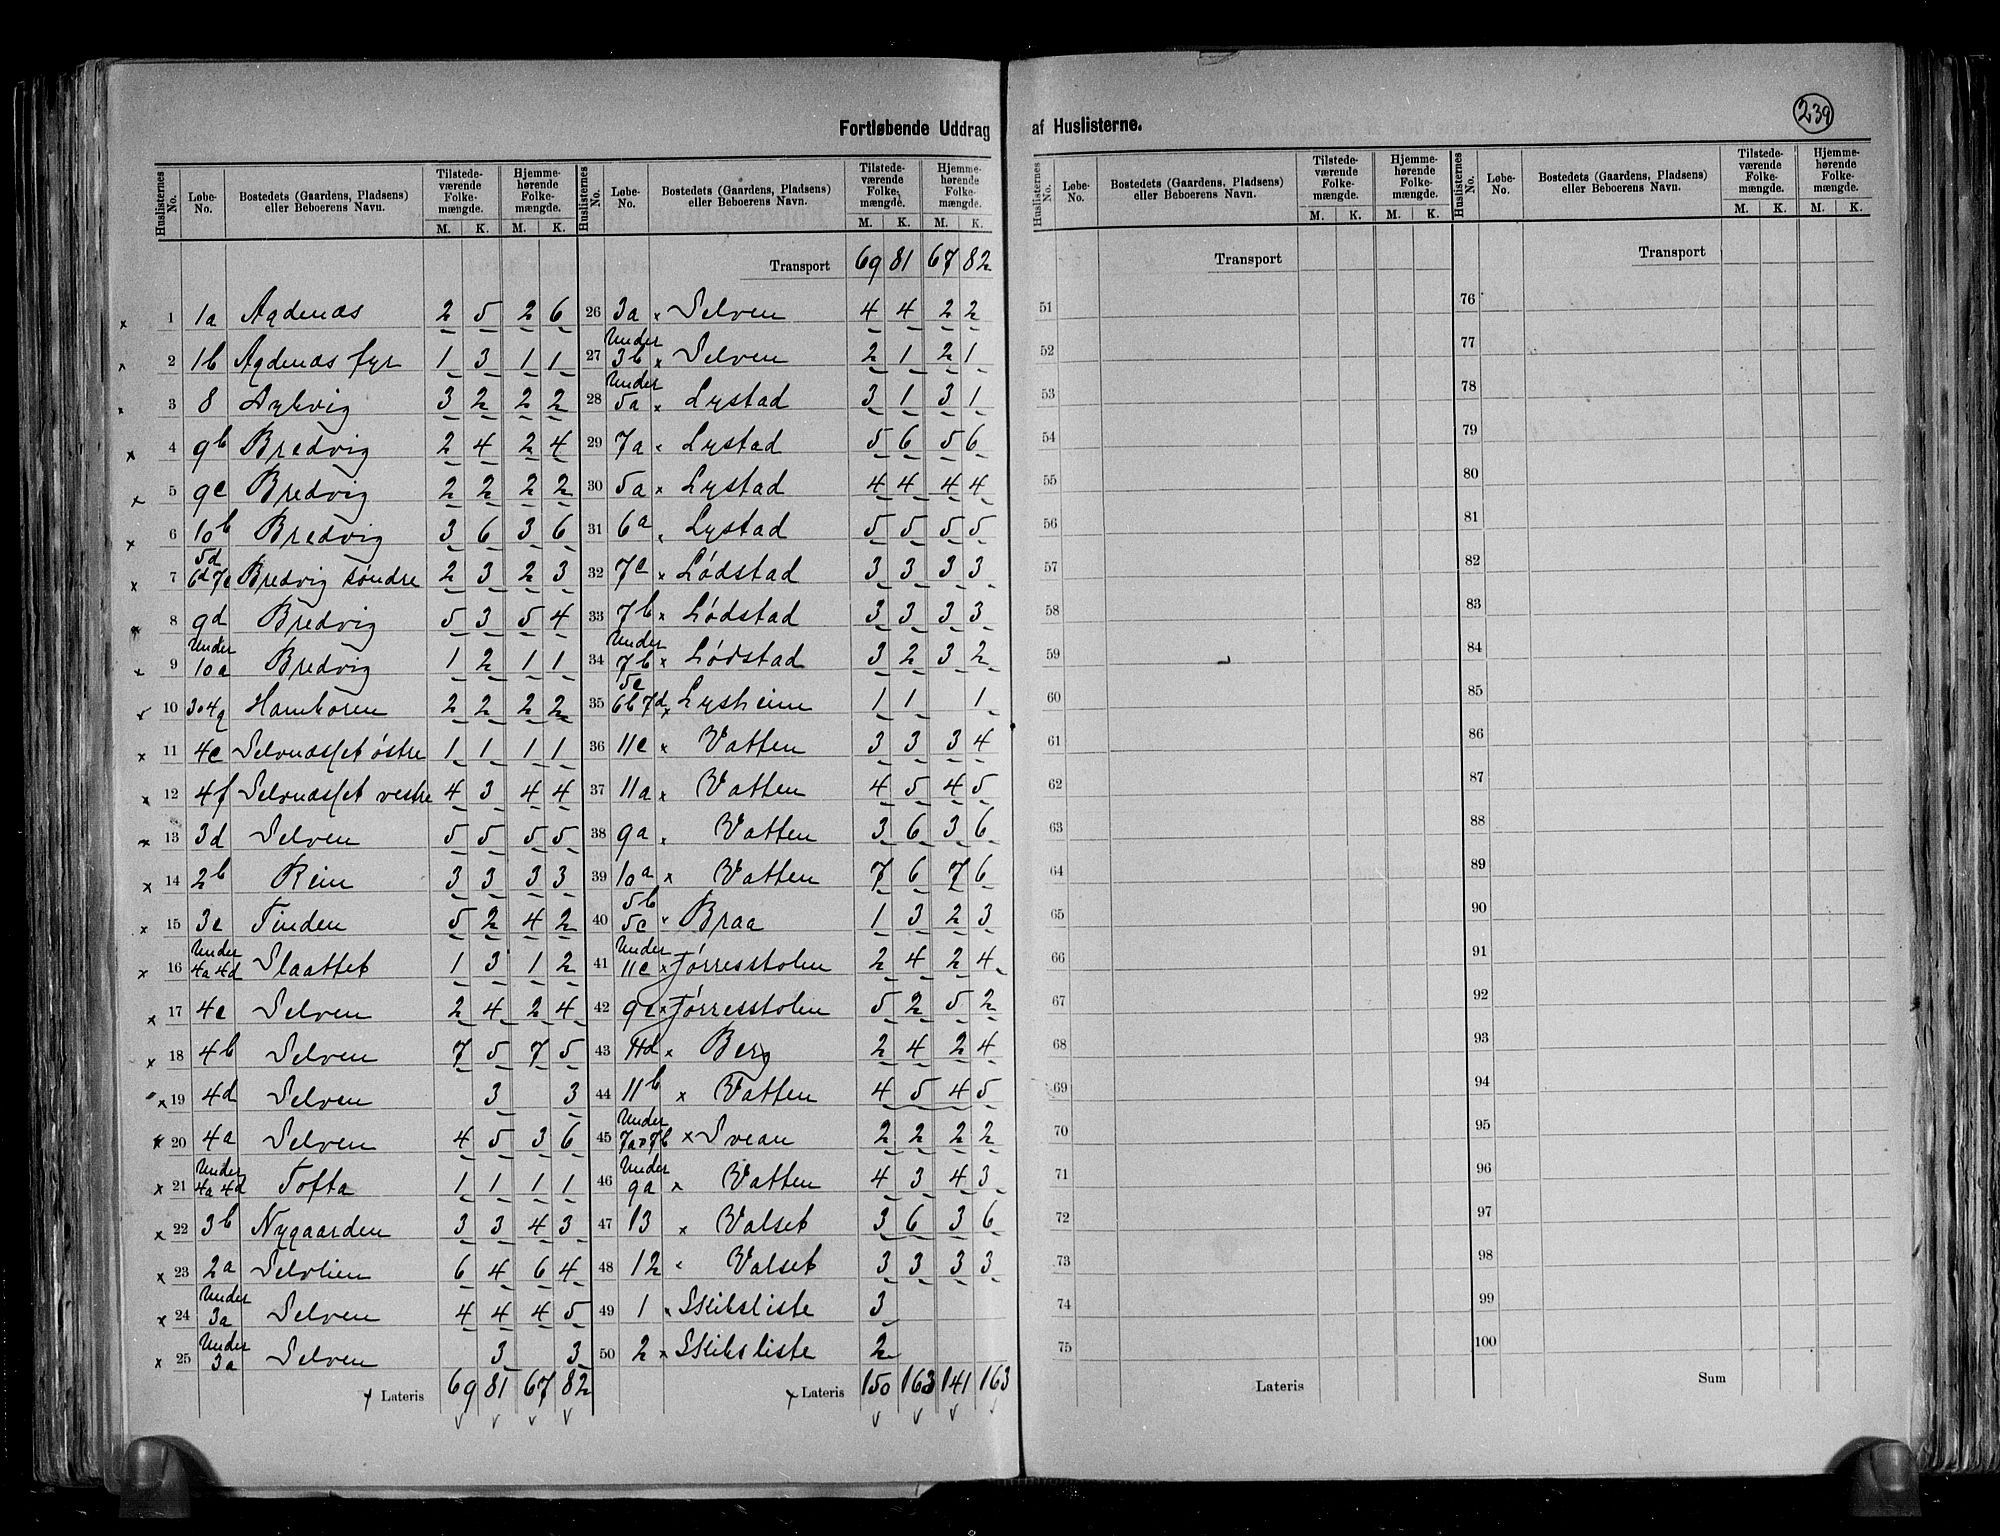 239
Fortløbende Uddrag af Huslisterne.
Huslisternes No. Løbe-No. Bostedets (Gaardens, Pladsens) eller Beboerens Navn. Tilstedeværende Folkemængde. M. K. Hjemmehørende Folkemængde. M. K.
1 1a Agdenæs 2 5 2 6
2 1b Agdenæs fyr 1 3 1 1
3 8 Dybvig 3 2 2 2
4 9b Bredvig 2 4 2 4
5 9c Bredvig 2 2 2 2
6 10b Bredvig 3 6 3 6
7 5d 6d 7e Bredvig söndre 2 3 2 3
8 9d Bredvig 5 3 5 4
9 Under 10a Bredvig 1 2 1 1
10 Hamboren 2 2 2 2
11 4e Selvnæsset østre 1 1 1 1
12 4f Selvnæsset vestre 4 3 4 4
13 3d Selven 5 5 5 5
14 2b Rein 3 3 3 3
15 3c Tinden 5 2 4 2
16 Under 4a 4d Slaattet 1 3 1 2
17 4c Selven 2 4 2 4
18 4b Selven 7 5 7 5
19 4d Selven 3 3
20 4a Selven 4 5 3 6
21 Under 4a 4d Tofta 1 1 1 1
22 3b Nygaarden 3 3 4 3
23 2a Selvlien 6 4 6 4
24 Under 3a Selven 4 4 4 5
25 Under 3a Selven 3 3
x Lateris 69 81 67 82
Huslisternes No. Løbe-No. Bostedets (Gaardens, Pladsens) eller Beboerens Navn. Tilstedeværende Folkemængde. M. K. Hjemmehørende Folkemængde. M. K.
Transport 69 81 67 82
26 3a x Selven 4 4 2 2
27 Under 3b x Selven 2 1 2 1
28 Under 5a x Lystad 3 1 3 1
29 7a x Lystad 5 6 5 6
30 5a x Lystad 4 4 4 4
31 6a x Lystad 5 5 5 5
32 7c x Lödstad 3 3 3 3
33 7b x Lödstad 3 3 3 3
34 Under 7b x Lödstad 3 2 3 2
35 5c 6b 7d x Lysheim 1 1 1
36 11c x Vatten 3 3 3 4
37 11a x Vatten 4 5 4 5
38 9a x Vatten 3 6 3 6
39 10a x Vatten 7 6 7 6
40 5b 5c x Braa 1 3 2 3
41 Under 11c x Tørresstolen 2 4 2 4
42 9c x Tørresstolen 5 2 5 2
43 11d x Berg 2 4 2 4
44 11b x Vatten 4 5 4 5
45 Under 7a 7b x Svean 2 2 2 2
46 Under 9a x Vatten 4 3 4 3
47 13 x Valset 3 6 3 6
48 12 x Valset 3 3 3 3
49 1 x Skibsliste 3
50 2 x Skibsliste 2
x Lateris 150 163 141 163
Huslisternes No. Løbe-No. Bostedets (Gaardens, Pladsens) eller Beboerens Navn. Tilstedeværende Folkemængde. M. K. Hjemmehørende Folkemængde. M. K.
Transport
51
52
53
54
55
56
57
58
59
60
61
62
63
64
65
66
67
68
69
70
71
72
73
74
75
Lateris
Huslisternes No. Løbe-No. Bostedets (Gaardens, Pladsens) eller Beboerens Navn. Tilstedeværende Folkemængde. M. K. Hjemmehørende Folkemængde. M. K.
Transport
76
77
78
79
80
81
82
83
84
85
86
87
88
89
90
91
92
93
94
95
96
97
98
99
100
Sum